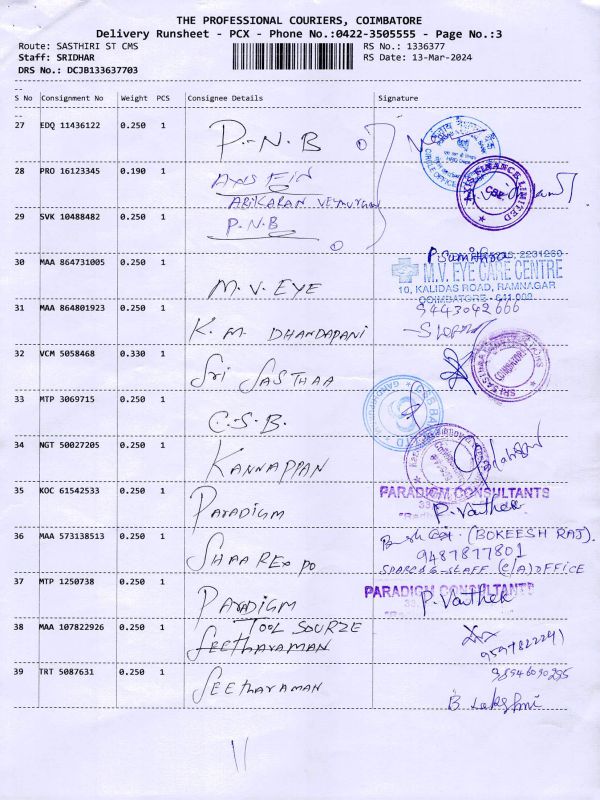 THE PROFESSIONAL COURIERS, COIMBATORE
Delivery Runsheet - PCX - Phone No.:0422-3505555 - Page No.:3
Route: SASTHIRI ST CMS
RS No.: 1336377
Staff: SRIDHAR
RS Date: 13-Mar-2024
DRS No.: DCJB133637703
S No Consignment No Weight PCS Consignee Details Signature
27 EDQ 11436122 0.250 1 P.N.B
28 PRO 16123345 0.190 1 AXIS FIN
29 SVK 10488482 0.250 1 P.N.B
AXIS FINANCE LIMITED
CBE
30 MAA 864731005 0.250 1 M.V. EYE
P. Sumithra
M.V. EYE CARE CENTRE
10, KALIDAS ROAD, RAMNAGAR
COIMBATORE - 641 009
31 MAA 864801923 0.250 1 K. M. DHANDAPANI
9443042666
32 VCM 5058468 0.330 1 Sri SASTHAA
33 MTP 3069715 0.250 1 C.S.B.
34 NGT 50027205 0.250 1 KANNAPPAN
35 KOC 61542533 0.250 1 PARADIGM
PARADIGM CONSULTANTS
36 MAA 573138513 0.250 1 SHAAREXPO
(BOKEESH RAJ).
9487877801
37 MTP 1250738 0.250 1 PARADIGM
PARADIGM CONSULTANTS
38 MAA 107822926 0.250 1 TOOL SOURZE
SEETHARAMAN
39 TRT 5087631 0.250 1 SEETHARAMAN
B Lakshmi